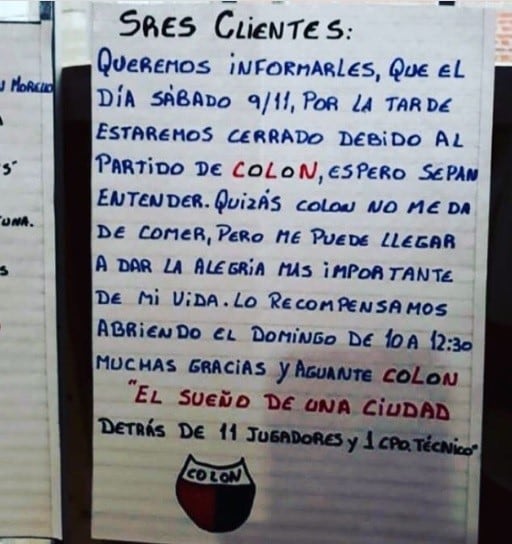 N MORENO
S
UNA.
S
SRES CLIENTES:
QUEREMOS INFORMARLES, QUE EL
DÍA SÁBADO 9/11, POR LA TARDE
ESTAREMOS CERRADO DEBIDO AL
PARTIDO DE COLON, ESPERO SEPAN
ENTENDER. QUIZÁS COLON NO ME DA
DE COMER, PERO ME PUEDE LLEGAR
A DAR LA ALEGRIA MAS IMPORTANTE
DE MI VIDA. LO RECOMPENSAMOS
ABRIENDO EL DOMINGO DE 10 A 12:30
MUCHAS GRACIAS Y AGUANTE COLON
"EL SUEÑO DE UNA CIUDAD
DETRÁS DE 11 JUGADORES Y 1 CPO. TÉCNICO"
COLON